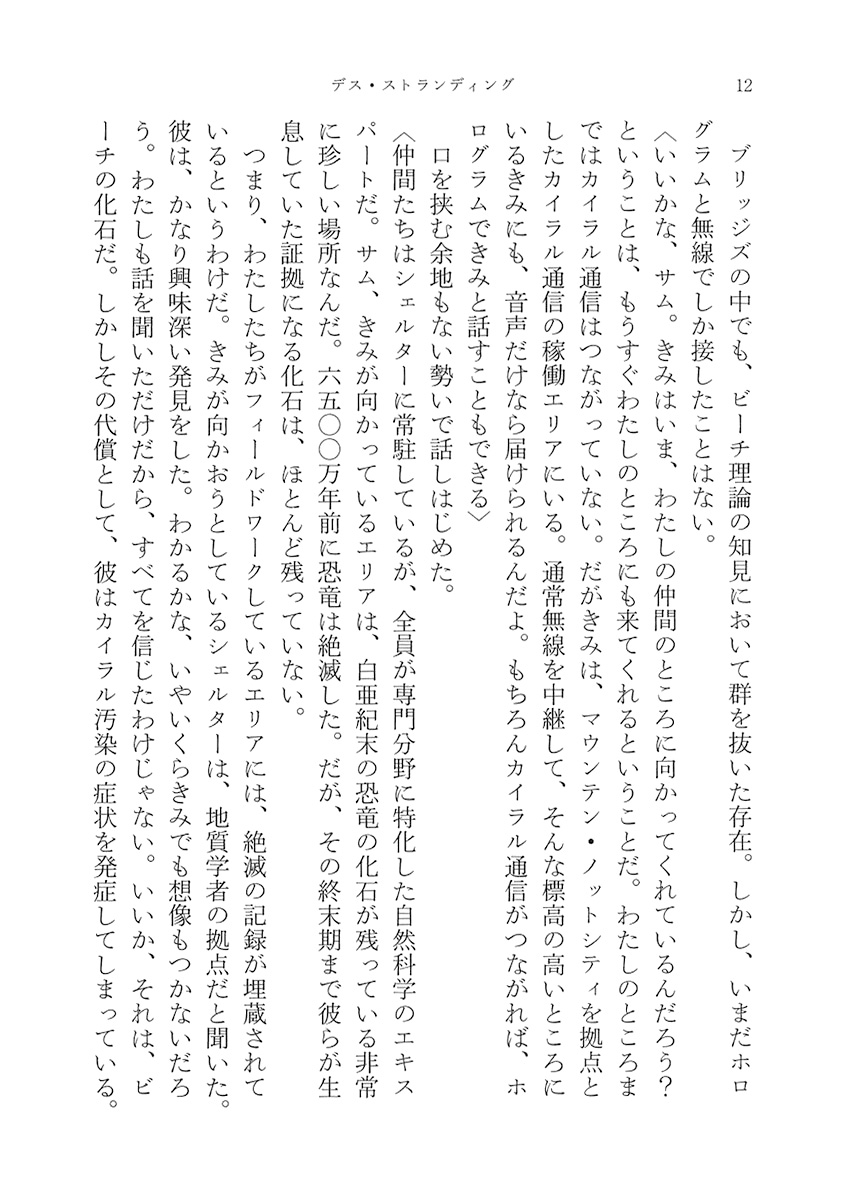 デス・ストランディング
12
　ブリッジズの中でも、ビーチ理論の知見において群を抜いた存在。しかし、いまだホロ
グラムと無線でしか接したことはない。
〈いいかな、サム。きみはいま、わたしの仲間のところに向かってくれているんだろう？
ということは、もうすぐわたしのところにも来てくれるということだ。わたしのところま
ではカイラル通信はつながっていない。だがきみは、マウンテン・ノットシティを拠点と
したカイラル通信の稼働エリアにいる。通常無線を中継して、そんな標高の高いところに
いるきみにも、音声だけなら届けられるんだよ。もちろんカイラル通信がつながれば、ホ
ログラムできみと話すこともできる〉
　口を挟む余地もない勢いで話しはじめた。
〈仲間たちはシェルターに常駐しているが、全員が専門分野に特化した自然科学のエキス
パートだ。サム、きみが向かっているエリアは、白亜紀末の恐竜の化石が残っている非常
に珍しい場所なんだ。六五〇〇万年前に恐竜は絶滅した。だが、その終末期まで彼らが生
息していた証拠になる化石は、ほとんど残っていない。
　つまり、わたしたちがフィールドワークしているエリアには、絶滅の記録が埋蔵されて
いるというわけだ。きみが向かおうとしているシェルターは、地質学者の拠点だと聞いた。
彼は、かなり興味深い発見をした。わかるかな、いやいくらきみでも想像もつかないだろ
う。わたしも話を聞いただけだから、すべてを信じたわけじゃない。いいか、それは、ビ
ーチの化石だ。しかしその代償として、彼はカイラル汚染の症状を発症してしまっている。